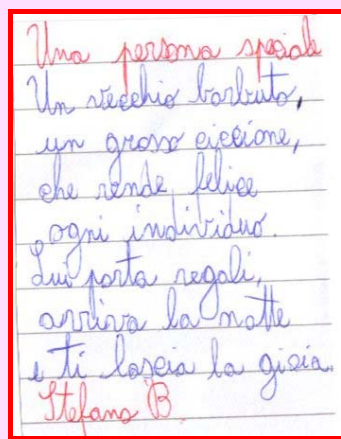 Una persona speciale
Un vecchio barbuto,
un grosso ciccione,
che rende felice
ogni individuo.
Lui porta regali,
arriva la notte
e ti lascia la gioia.
Stefano B.